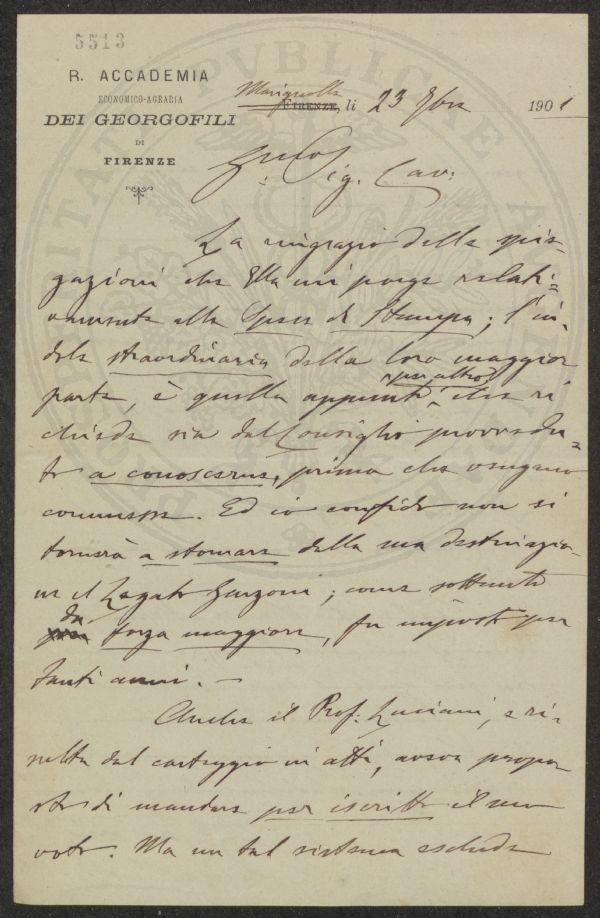 5513
R. ACCADEMIA
ECONOMICO-AGRARIA
DEI GEORGOFILI
DI
FIRENZE
Marignolle
FIRENZE, li 23 9bre 1901
Sig. Cav:
La ringrazio delle spie-
gazioni che Ella mi porge relati=
vamente alle Spese di Stampa; l'in-
dole straordinaria della loro maggior
parte, è quella appunto per altro che ri
chiede sia dal Consiglio provvedu=
to a conoscerne, prima che vengano
commesse. Ed io confido non si
tornerà a stornare dalla sua destinazio-
ne il Legato Garzoni; come sottacerlo
da forza maggiore, fu imposto per
tanti anni. -
Anche il Prof. Luciani, e ri-
sulta dal carteggio in atti, aveva propo
sto di mandare per iscritto il suo
voto. Ma un tal sistema esclude